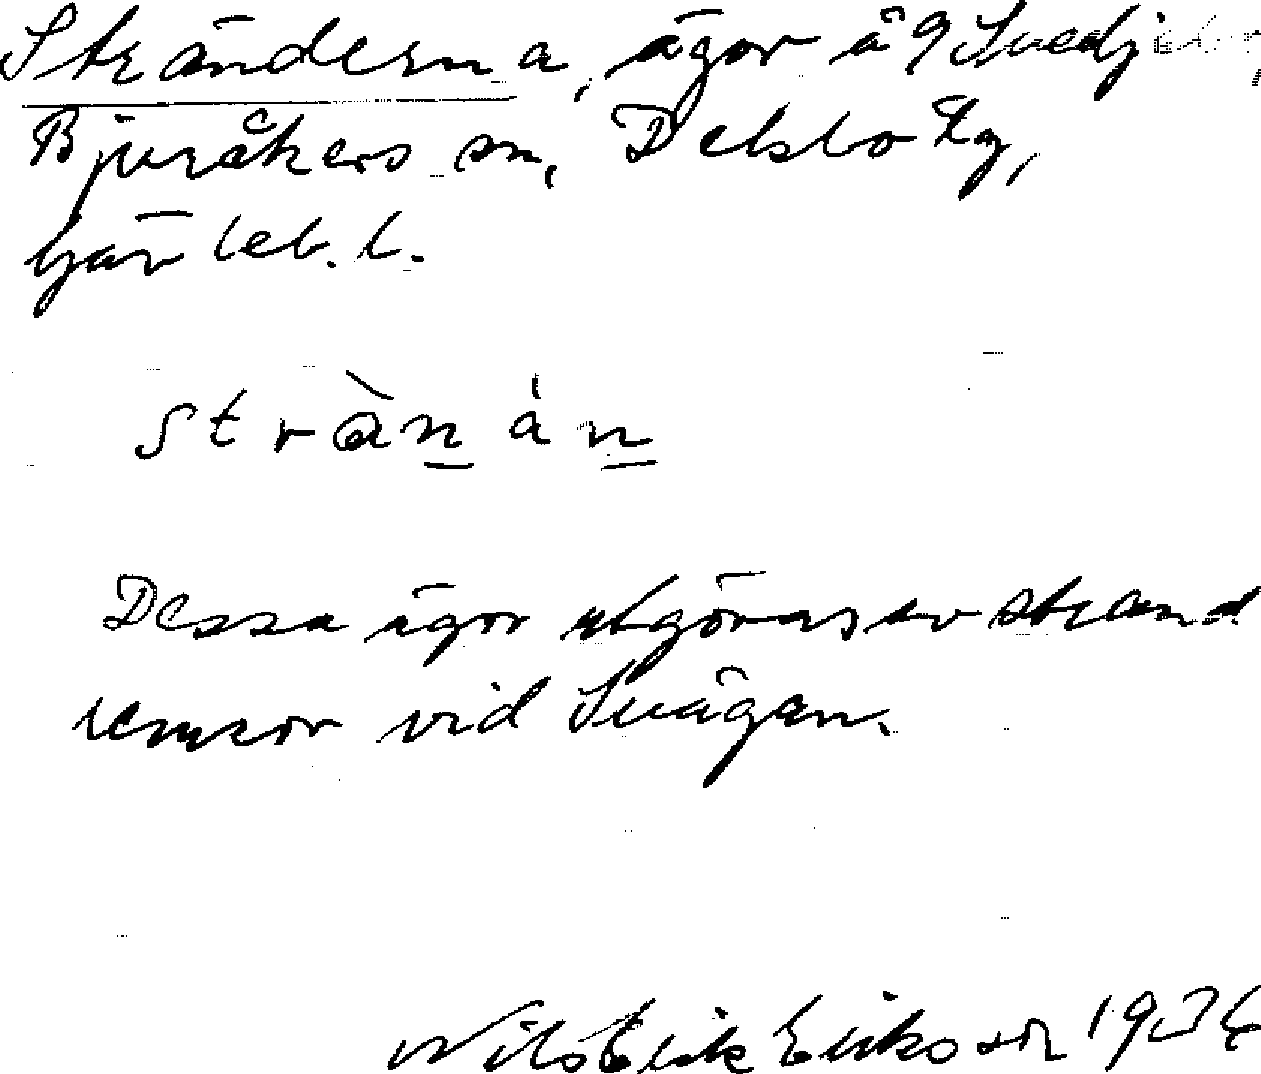 Stränderna, ägor å Svedj
Bjuråkers sn, Delsbo tg,
Gävleb. l.
stràn ȧn
Dessa ägor utgöras av strand
remsor vid Svågan.
Nils Erik Eriksson 1934